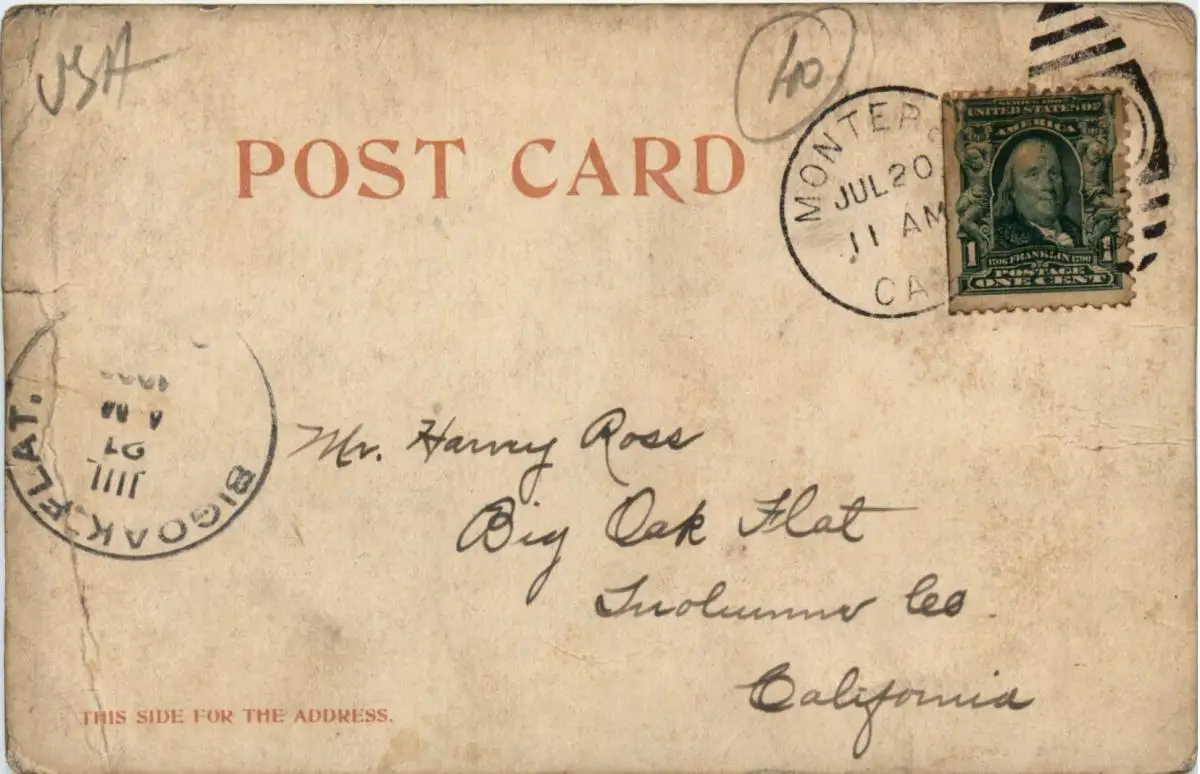 USA
40
POST CARD
MONTEREY
JUL 20
11 AM
CAL
SERIES 1902
UNITED STATES OF
AMERICA
1 1
1706 FRANKLIN 1790
POSTAGE
ONE CENT
Mr. Harvey Ross
Big Oak Flat
Tuolumne Co
California
BIG OAK FLAT.
JUL
21
A M
THIS SIDE FOR THE ADDRESS.